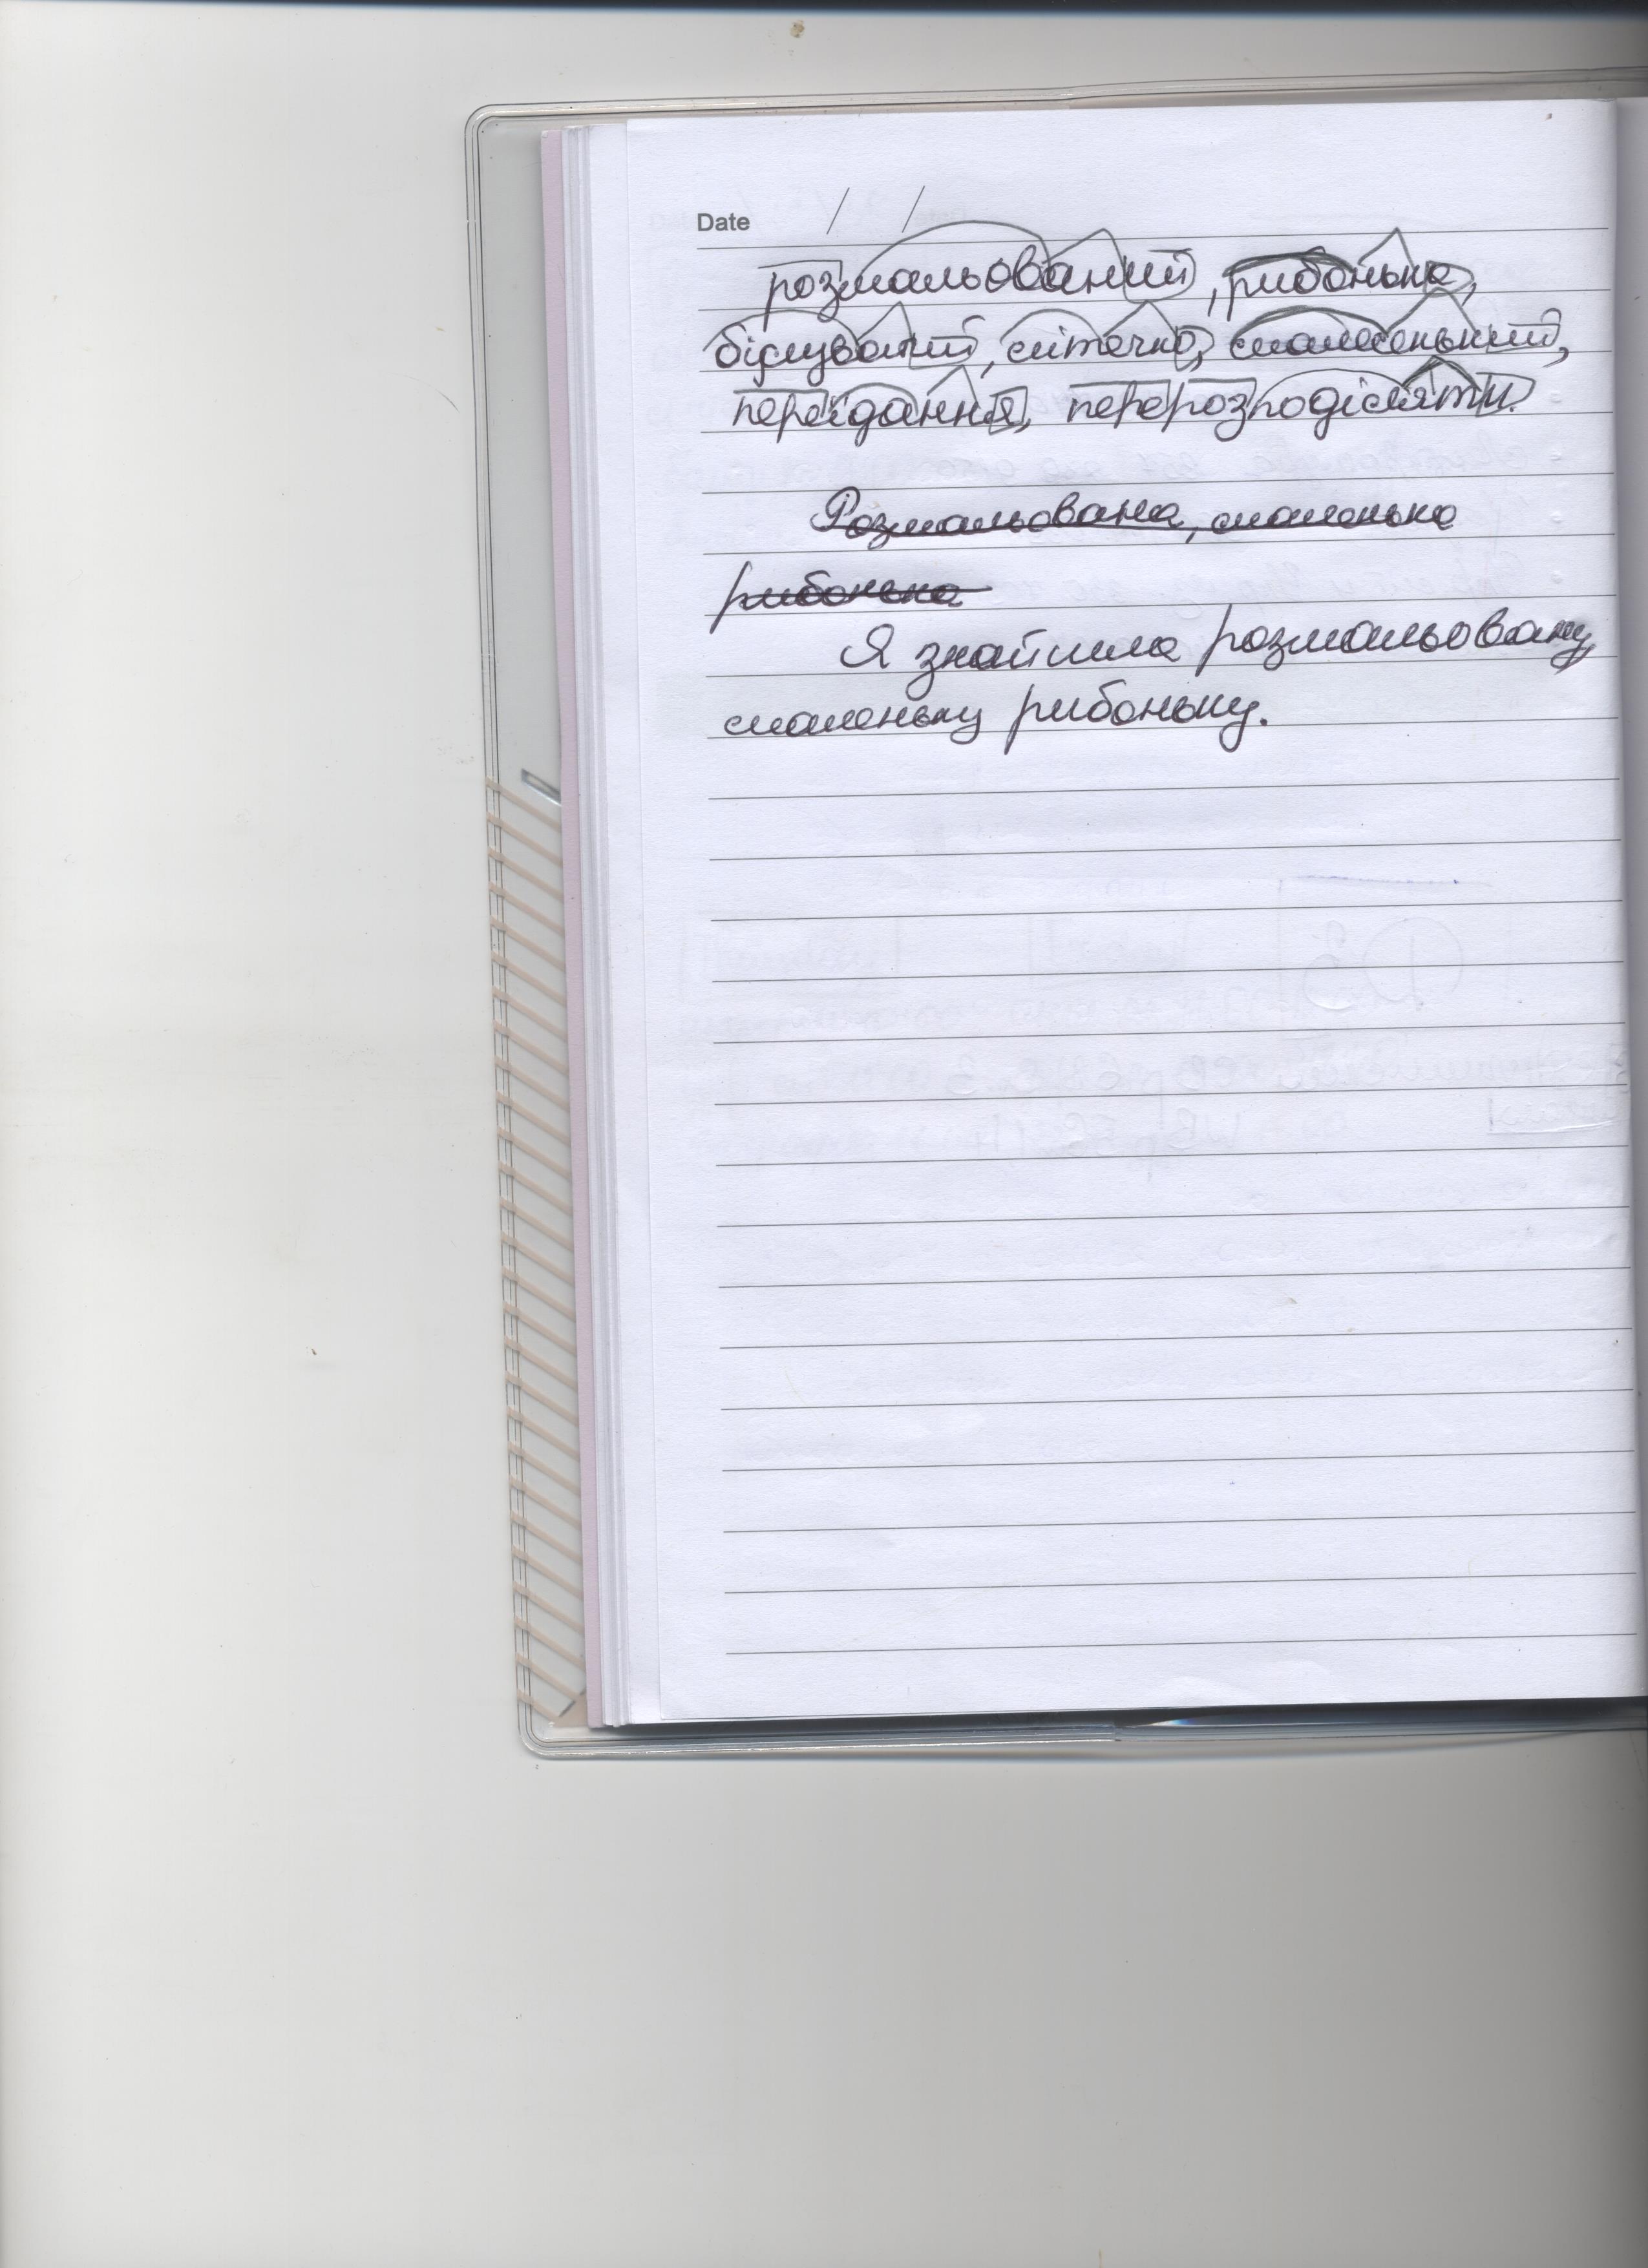 Date / /
розмальований, рибонька,
білуватий, ситечко, малесенький,
переїдання, перерозподіляти.
Розмальована, маленька
рибонька
Я знайшла розмальовану,
маленьку рибоньку.